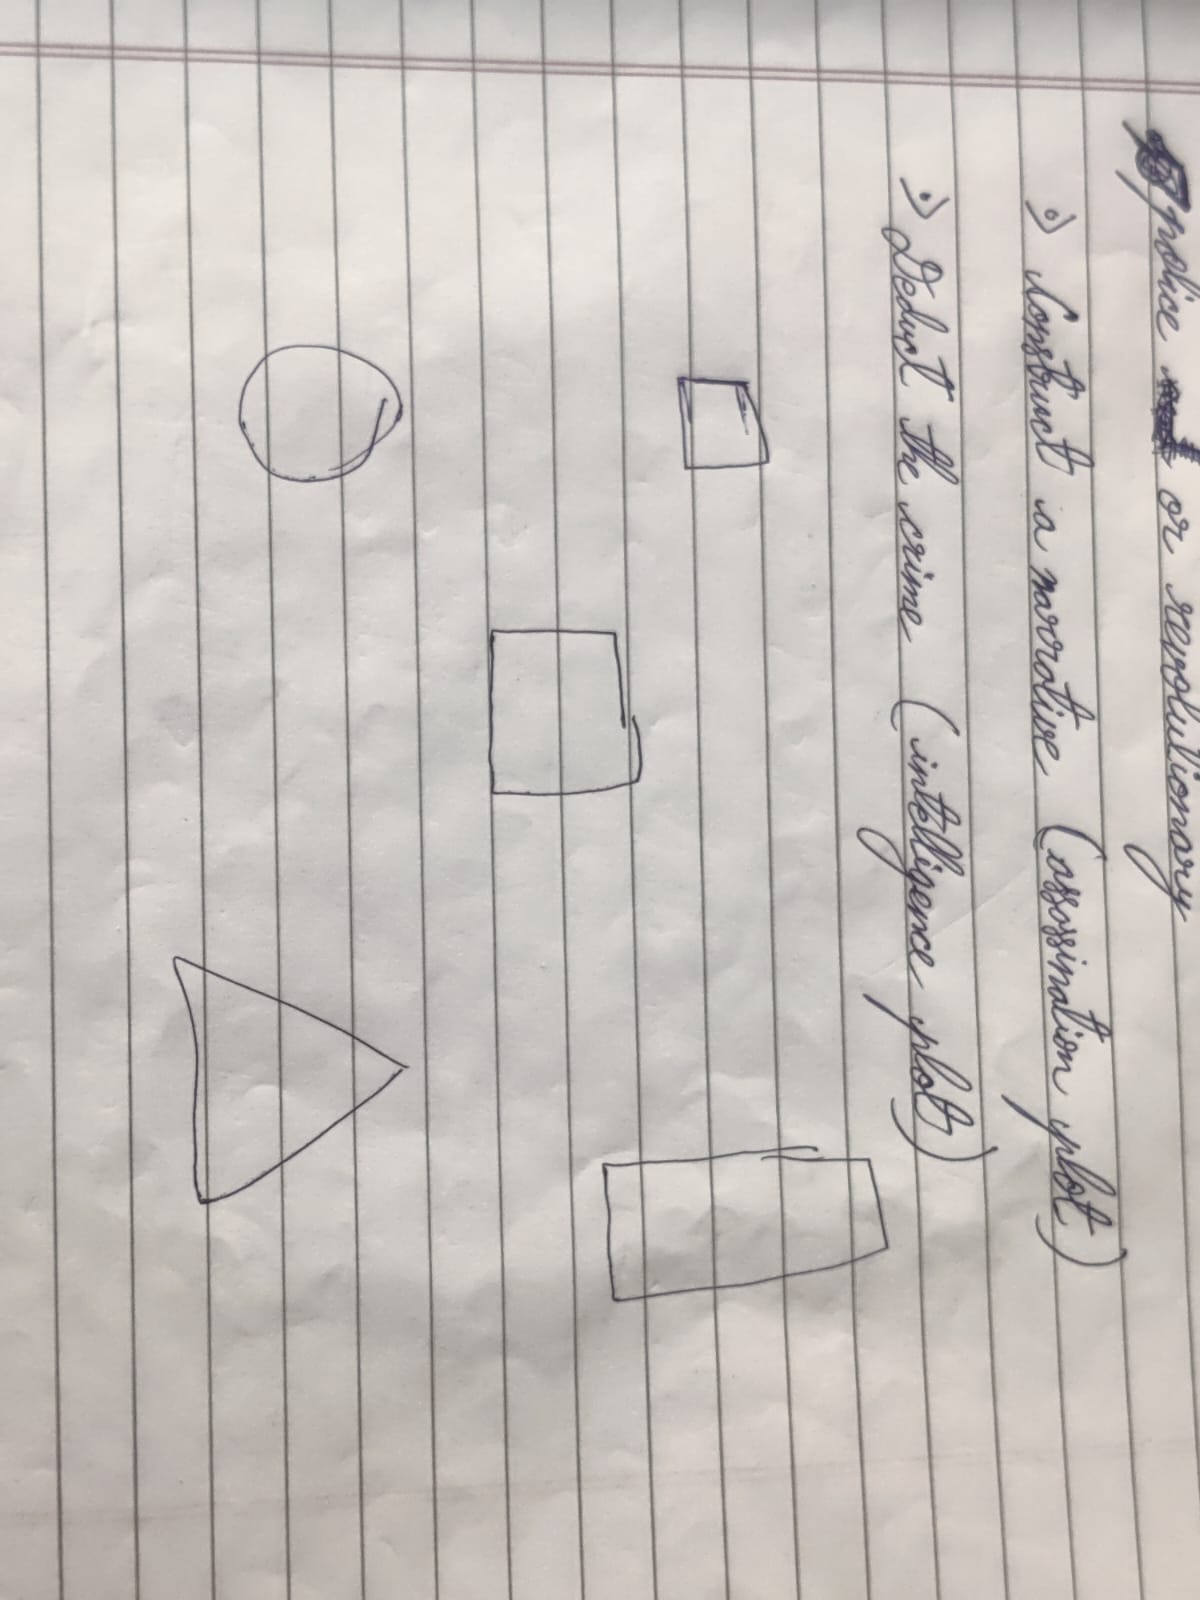 police or revolutionary
:) Construct a narrative (assassination plot)
:) Deduct the crime (intelligence plot)